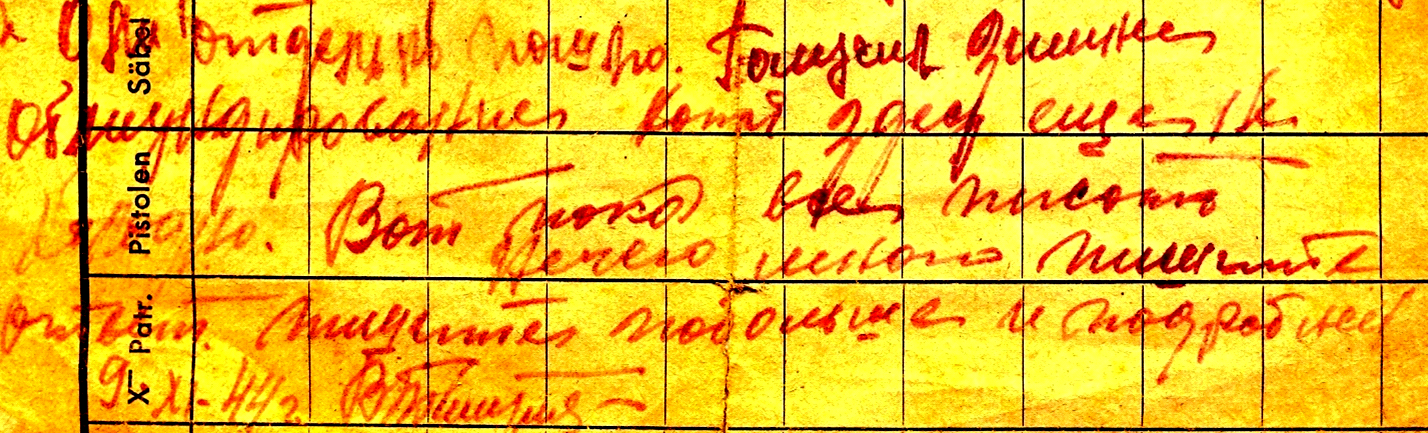 Säbel
Pistolen
Patr.
Получил зимнее
обмундирование хотя здесь еще не
холодно. Вот пока все писать
нечего много пишите
ответ. пишите побольше и подробней
9-XI-44г.